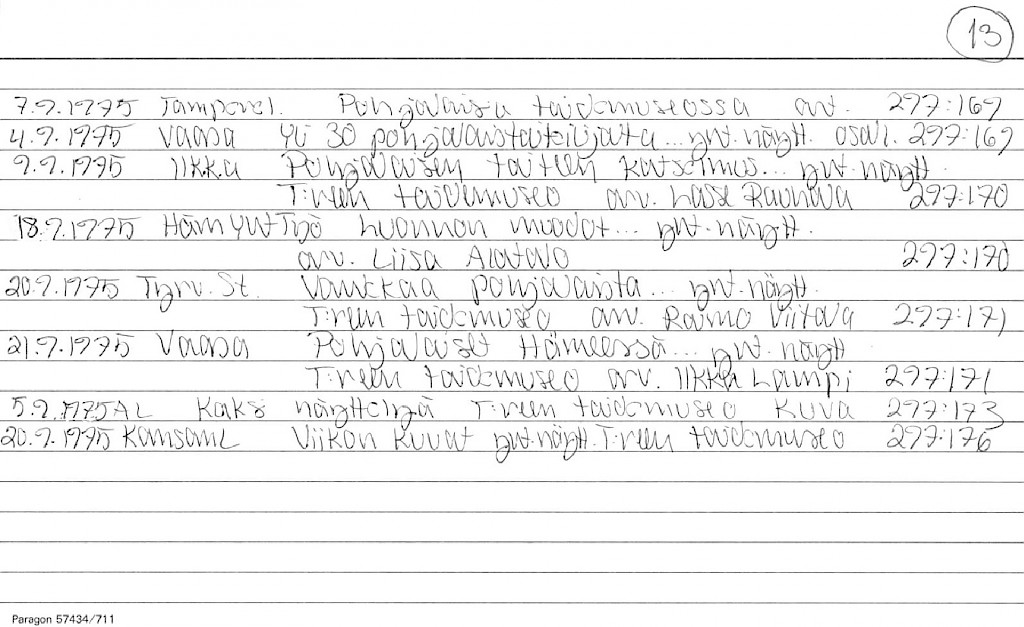 13
7.9.1975 Tamperel. Pohjalaisia taidemuseossa arv. 297:169
4.9.1975 Vaasa Yli 30 pohjalaistaiteilijata... yht.näytt. osall. 297:169
9.9.1975 Ilkka Pohjalaisen taiteen katselmus... yht.näytt.
T:reen taidemuseo arv. Lasse Rauhala 297:170
18.9.1975 HämYhtTyö Luonnon muodot... yht.näytt.
arv. Liisa Alatalo 297:170
20.9.1975 Tyrv. St. Vankkaa pohjalaista... yht.näytt.
T:reen taidemuseo arv. Raimo Viitala 297:171
21.9.1975 Vaasa Pohjalaiset Hämeessä... yht.näytt
T:reen taidemuseo arv. Ilkka Lampi 297:171
5.9.1975 AL Kaksi näyttelyä T:reen taidemuseo Kuva 297:173
20.9.1975 KansanL Viikon kuvat yht.näytt. T:reen taidemuseo 297:176
Paragon 57434/711